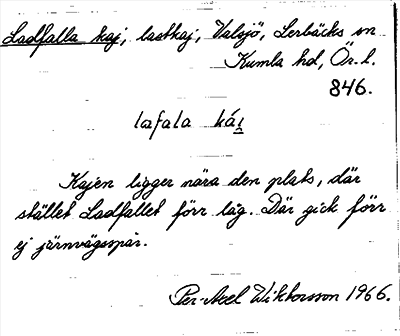 Ladfalla kaj, lastkaj, Valsjö, Lerbäcks sn
Kumla hd, Ör. l.
846.
lafala kái̯
Kajen ligger nära den plats, där
stället Ladfallet förr låg. Där gick förr
ej järnvägsspår.
Per-Axel Wiktorsson 1966.